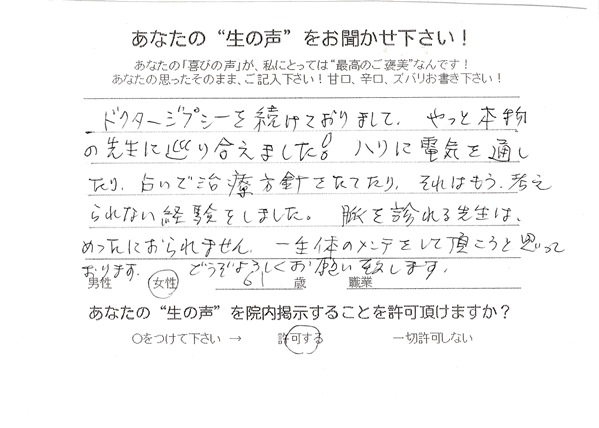 あなたの “生の声” をお聞かせ下さい！
あなたの「喜びの声」が、私にとっては“最高のご褒美”なんです！
あなたの思ったそのまま、ご記入下さい！甘口、辛口、ズバリお書き下さい！
ドクタージプシーを続けておりまして、やっと本物
の先生に巡り合えました！ハリに電気を通し
たり、占いで治療方針をたてたり、それはもう、考え
られない経験をしました。脈を診れる先生は、
めったにおられません。一生体のメンテをして頂こうと思って
おります。どうぞよろしくお願い致します。
男性 女性 61 歳 職業
あなたの “生の声” を院内掲示することを許可頂けますか？
○をつけて下さい → 許可する 一切許可しない